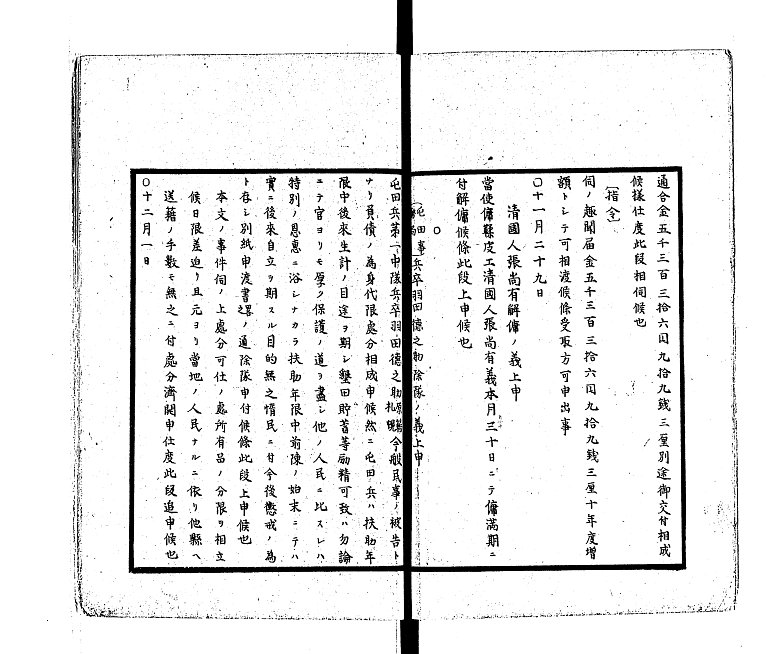 通合金五千三百三拾六円九拾九銭三厘別途御交付相成
候様仕度此段相伺候也
［指令］
伺ノ趣聞届金五千三百三拾六円九拾九銭三厘十年度増
額トシテ可相渡候條受取方可申出事
〇十一月二十九日
清國人張尚有解傭ノ義上申
當使傭鞣皮工清國人張尚有義本月三十日ニテ傭満期ニ
付解傭候條此段上申候也
〇
兵卒羽田徳之助除隊ノ義上申
屯田兵第一中隊兵卒羽田徳之助今般民事ノ被告ト
ナリ負債ノ為身代限處分相成申候然ニ屯田兵ハ扶助年
限中後來生計ノ目途ヲ期シ墾田貯蓄等励精可致ハ勿論
ニテ官ヨリモ厚ク保護ノ道ヲ盡シ他ノ人民ニ比スレハ
特別ノ恩惠ニ浴シナカラ扶助年限中前陳ノ始末ニテハ
實ニ後來自立ヲ期スル目的無之惰民ニ付今後懲戒ノ為
ト存シ別紙申渡書之通除隊申付候條此段上申候也
本文ノ事件伺ノ上處分可仕ノ處所有品ノ分限ヲ相立
候日限差迫リ且元ヨリ當地ノ人民ナルニ依リ他縣ヘ
送籍ノ手數モ無之ニ付處分濟開申仕度此段追申候也
〇十二月一日